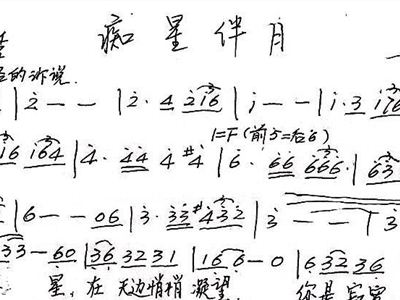 痴星伴月
的诉说.
| 2 - - | 2· 4 216 | i - - | i· 3 176
1=F (前5=后6)
16 164 | 4· 44 4 #4 | 6· 66 666· | 63
| 6 - - 06 | 3· 33 #432 | 3 - - | 3
33 - 60 | 36 3231 | 16 6 - 0 | 6 3236
星, 在 天边悄悄 凝望. 你是